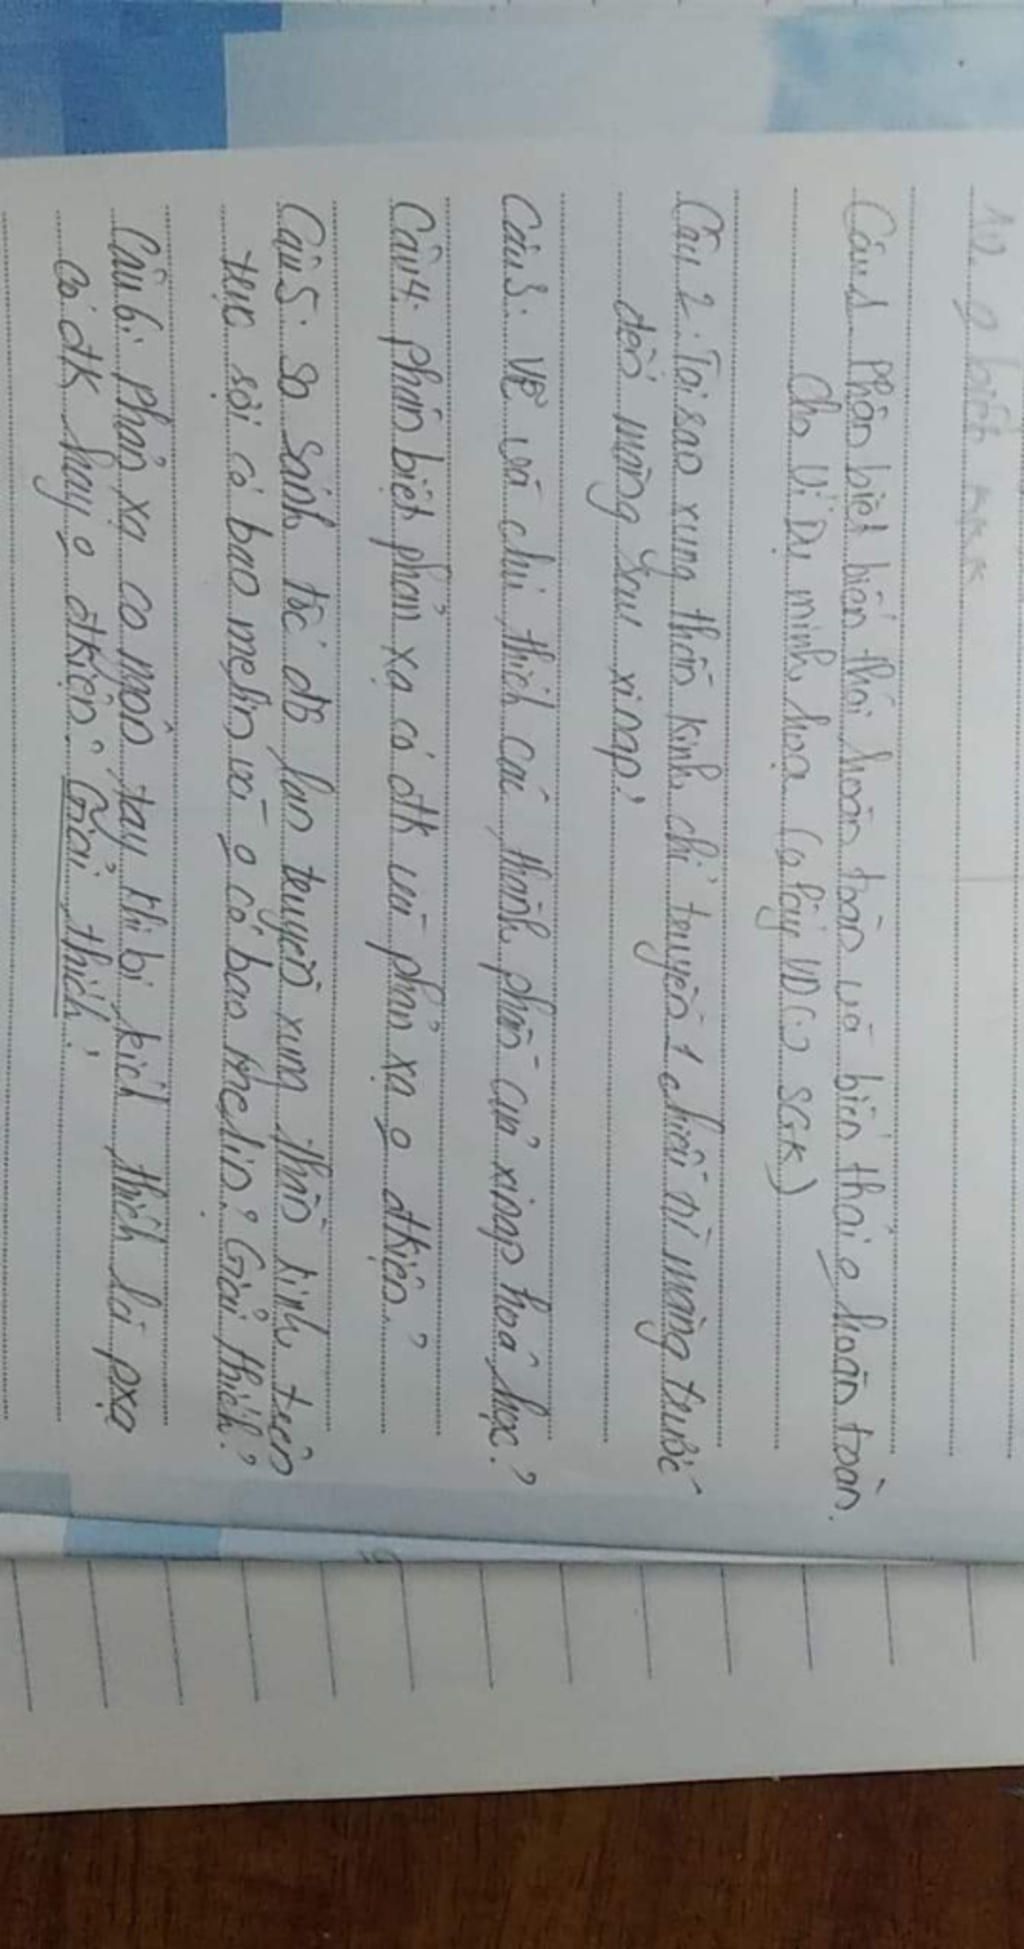 Câu 1. Phân biệt biến thái hoàn toàn và biến thái o hoàn toàn.
Cho Ví Dụ minh họa (o lấy VD (.) SGK)
Câu 2: Tại sao xung thần kinh chỉ truyền 1 chiều từ màng trước
đến màng sau xinap?
Câu 3: Vẽ và chú thích các thành phần của xinap hoá học?
Câu 4: phân biệt phản xạ có đk với phản xạ o đkiện?
Câu 5: So sánh tốc độ lan truyền xung thần kinh trên
sợi có bao melin và o có bao melin? Giải thích?
Câu 6: phản xạ co ngón tay khi bị kích thích là pxạ
có đk hay o đkiện? Giải thích?